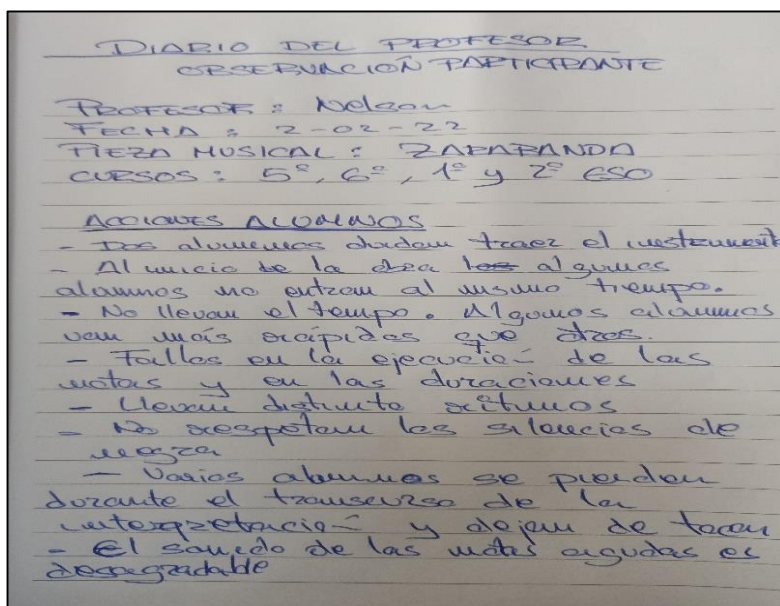 DIARIO DEL PROFESOR
OBSERVACIÓN PARTICIPANTE
PROFESOR : Nelson
FECHA : 2-02-22
PIEZA MUSICAL : ZARABANDA
CURSOS : 5º, 6º, 1º y 2º ESO
ACCIONES ALUMNOS
- Dos alumnos traer el instrument
- Al inicio de la obra los algunos
alumnos no entran al mismo tiempo.
- No llevan el tempo. Algunos alumnos
van más rápidos que otros.
- Fallos en la ejecución de las
notas y en las duraciones
- Llevan distinto ritmos
- No respetan los silencios de
negra
- Varios alumnos se pierden
durante el transcurso de la
interpretación y dejan de tocar
- El sonido de las notas agudas es
desagradable